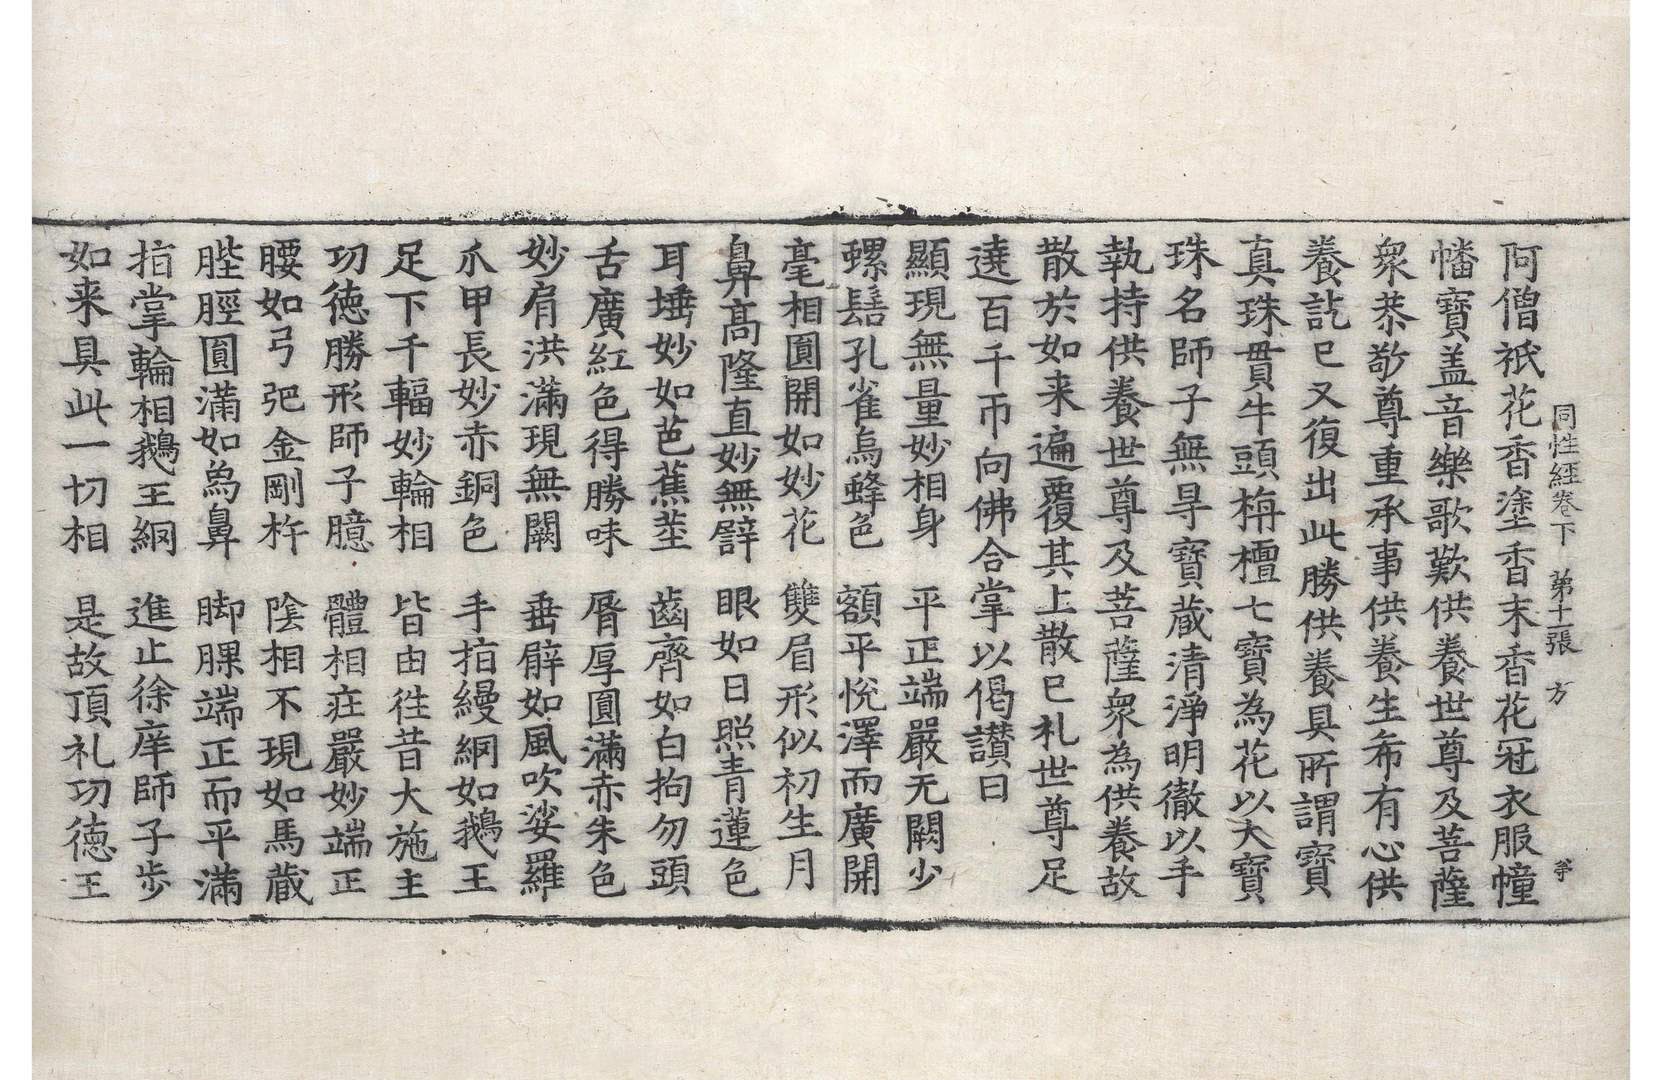 同性經卷下 第十二張 方
阿僧祇花香塗香末香花冠衣服幢
幡寶盖音樂歌歎供養世尊及菩薩
衆恭敬尊重承事供養生希有心供
養訖已又復出此勝供養具所謂寶
真珠貫牛頭栴檀七寶為花以大寶
珠名師子無㝵寶蔵清淨明徹以手
執持供養世尊及菩薩衆為供養故
散於如来遍覆其上散已礼世尊足
遶百千帀向佛合掌以偈讃曰
顯現無量妙相身 平正端嚴无闕少
螺髻孔雀烏蜂色 額平悅澤而廣開
毫相圎開如妙花 雙眉形似初生月
鼻髙隆直妙無譬 眼如日照青蓮色
耳埵妙如芭蕉莖 齒齊如白拘勿頭
舌廣紅色得勝味 脣厚圎滿赤朱色
妙肩洪滿現無闕 垂臂如風吹娑羅
爪甲長妙赤銅色 手指縵網如鵝王
足下千輻妙輪相 皆由徃昔大施主
功徳勝形師子臆 體相莊嚴妙端正
腰如弓弝金剛杵 陰相不現如馬蔵
䏶脛圎滿如象鼻 脚腂端正而平滿
指掌輪相鵝王網 進止徐庠師子步
如来具此一切相 是故頂礼功徳王